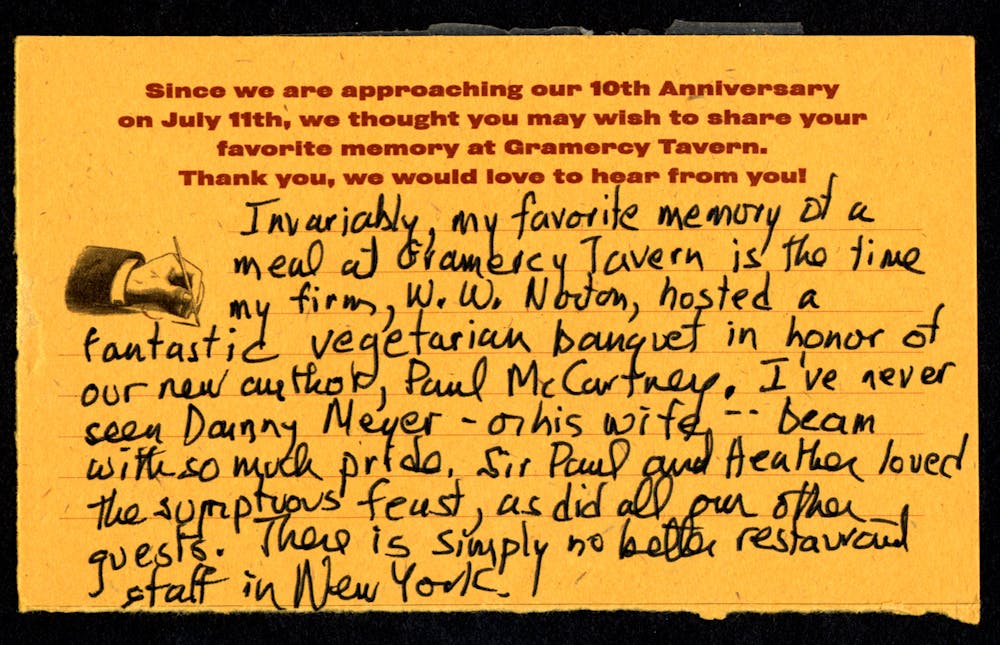 Since we are approaching our 10th Anniversary
on July 11th, we thought you may wish to share your
favorite memory at Gramercy Tavern.
Thank you, we would love to hear from you!
Invariably, my favorite memory of a
meal at Gramercy Tavern is the time
my firm, W. W. Norton, hosted a
fantastic vegetarian banquet in honor of
our new author, Paul McCartney. I've never
seen Danny Meyer - or his wife -- beam
with so much pride. Sir Paul and Heather loved
the sumptuous feast, as did all our other
guests. There is simply no better restaurant
staff in New York.